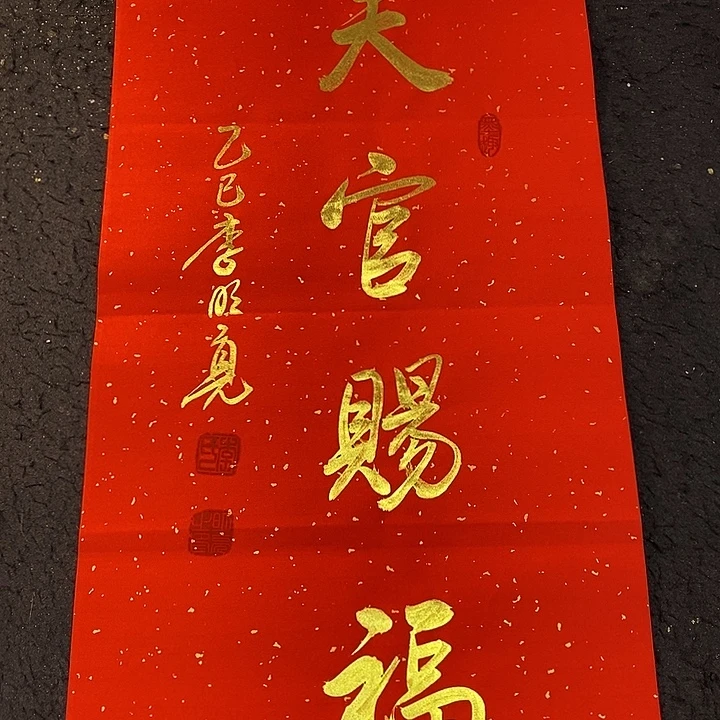 天官賜福
乙巳李明亮